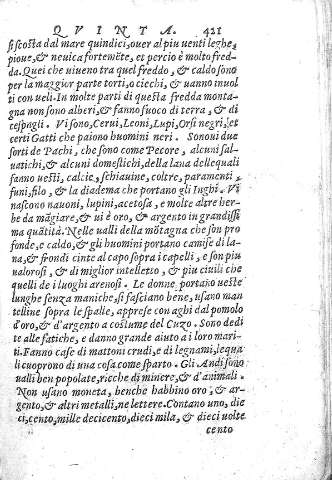 QVINTA. 421
si scosta dal mare quindici, ouer al piu uenti leghe,
pioue, & neuica fortemẽte, et percio è molto fred-
da. Quei che uiueno tra quel freddo, & caldo sono
per la maggior parte torti, o ciechi, & uanno inuol
ti con ueli. In molte parti di questa fredda monta-
gna non sono alberi, & fanno fuoco di terra, & di
cespagli. Vi sono, Cerui, Leoni, Lupi, Orsi negri, et
certi Gatti che paiono huomini neri. Sono ui due
sorti de Pachi, che sono come Pecore, alcuni sal-
uatichi, & alcuni domestichi, della lana delle quali
fanno uesti, calcie, schiauine, coltre, paramenti,
funi, filo, & la diadema che portano gli Inghi. Vi
nascono nauoni, lupini, acetosa, e molte altre her-
be da mãgiare, & ui è oro, & argento in grandissi
ma quãtità. Nelle ualli della mõtagna che son pro
fonde, e caldo, & gli huomini portano camise di la-
na, & frondi cinte al capo sopra i capelli, e son piu
ualorosi, & di miglior intelletto, & piu ciuili che
quelli de i luoghi arenosi. Le donne portano ueste
lunghe senza maniche, si fasciano bene, usano man
telline sopra le spalle, apprese con aghi dal pomolo
d'oro, & d'argento a costume del Cuzo. Sono dedi
te alle fatiche, e danno grande aiuto a i loro mari-
ti. Fanno case di mattoni crudi, e di legnami, lequa
li cuoprono di una cosa come sparto. Gli Andi sono
ualli ben popolate, ricche di minere, & d'animali.
Non usano moneta, benche habbino oro, & ar-
gento, & altri metalli, ne lettere. Contano uno, die
ci, cento, mille decicento, dieci mila, & dieci uolte
cento